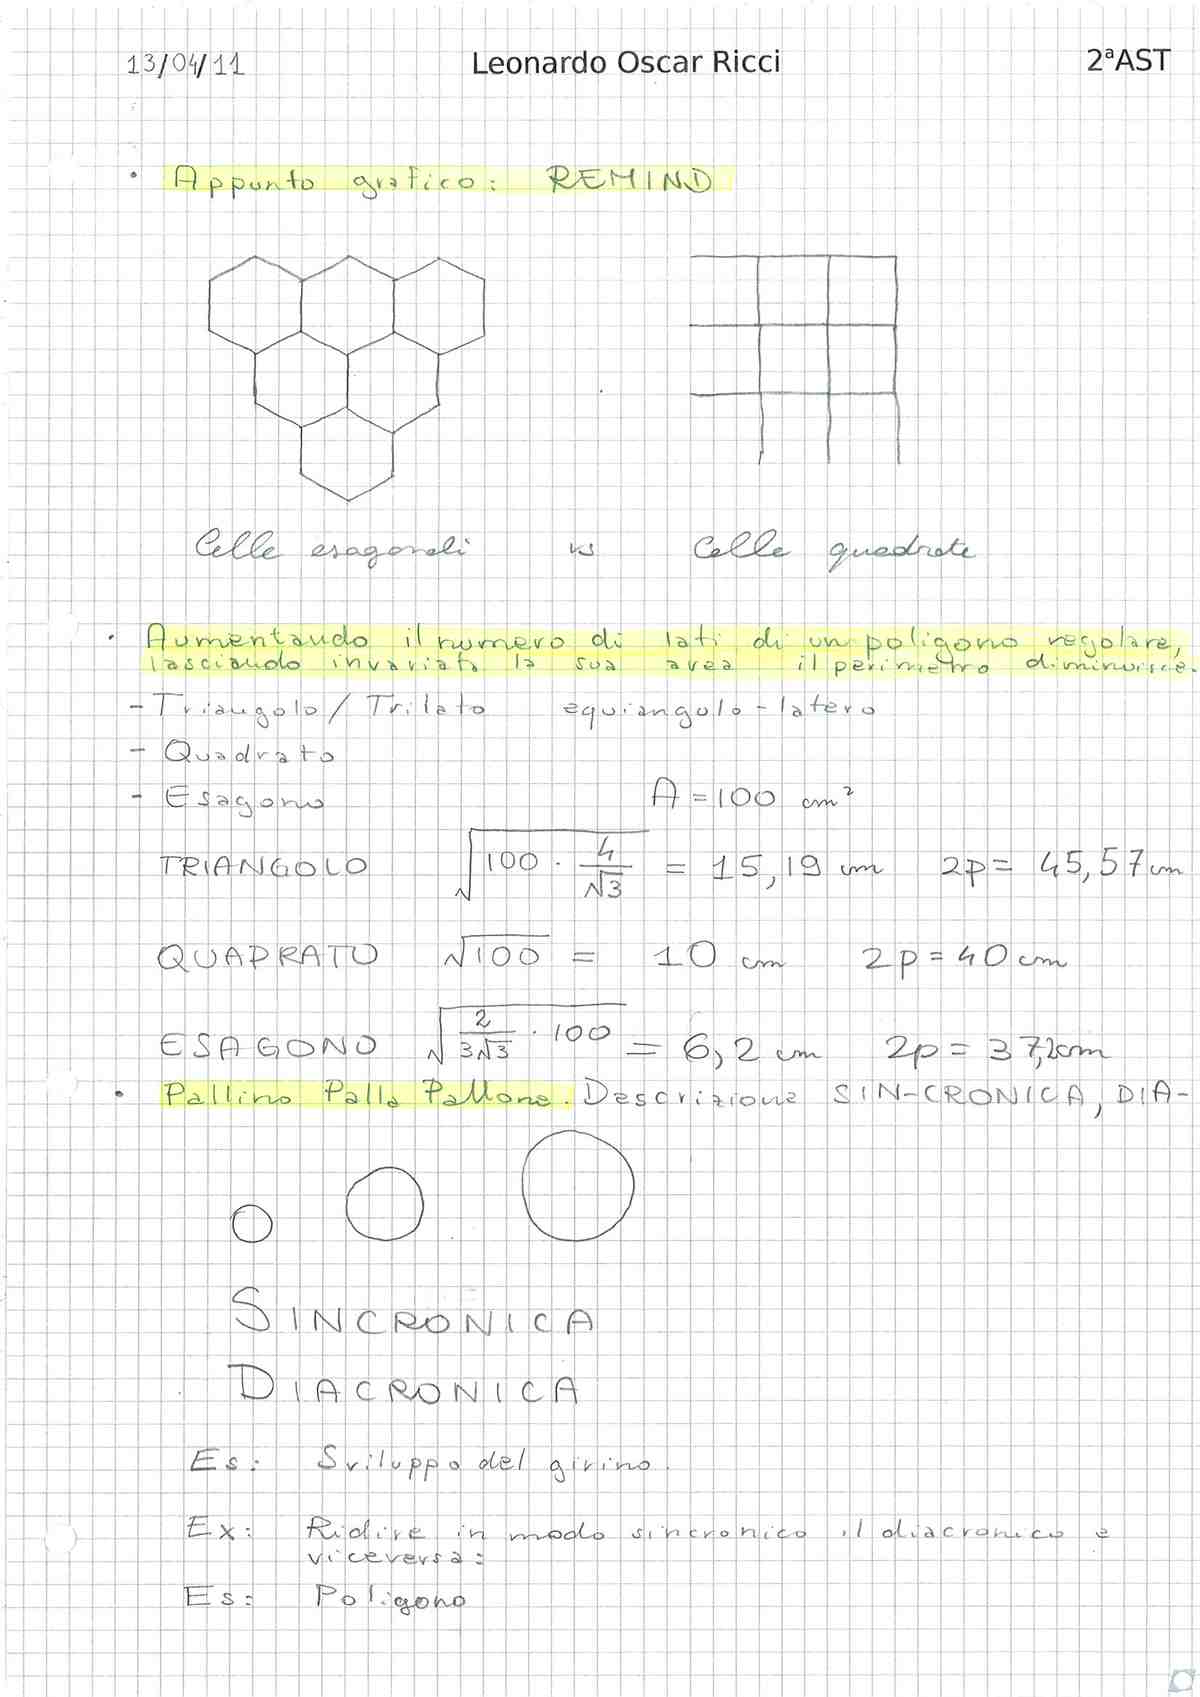 13/04/11 Leonardo Oscar Ricci 2ªAST
• Appunto grafico: REMIND
Celle esagonali vs Celle quadrate
• Aumentando il numero di lati di un poligono regolare,
lasciando invariata la sua area il perimetro diminuisce.
- Triangolo/Trilato equiangolo-latero
- Quadrato
- Esagono A=100 cm²
TRIANGOLO √(100 · 4/√3) = 15,19 cm 2p= 45,57cm
QUADRATO √100 = 10 cm 2p=40cm
ESAGONO √(2/3√3 · 100) = 6,2 cm 2p= 37,2cm
• Pallino Palla Pallone. Descrizione SIN-CRONICA, DIA-
SINCRONICA
DIACRONICA
Es: Sviluppo del girino.
Ex: Ridire in modo sincronico il diacronico e
viceversa:
Es: Poligono